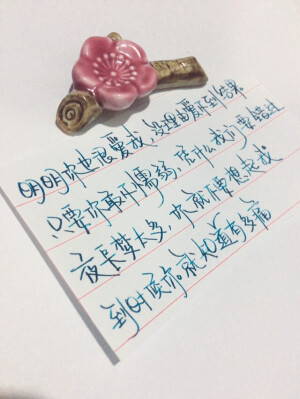 明明你也很爱我，没理由爱不到结果
只要你敢不懦弱，凭什么我们要错过
夜长梦太多，你就不要想起我
到时候你。就知道有多痛